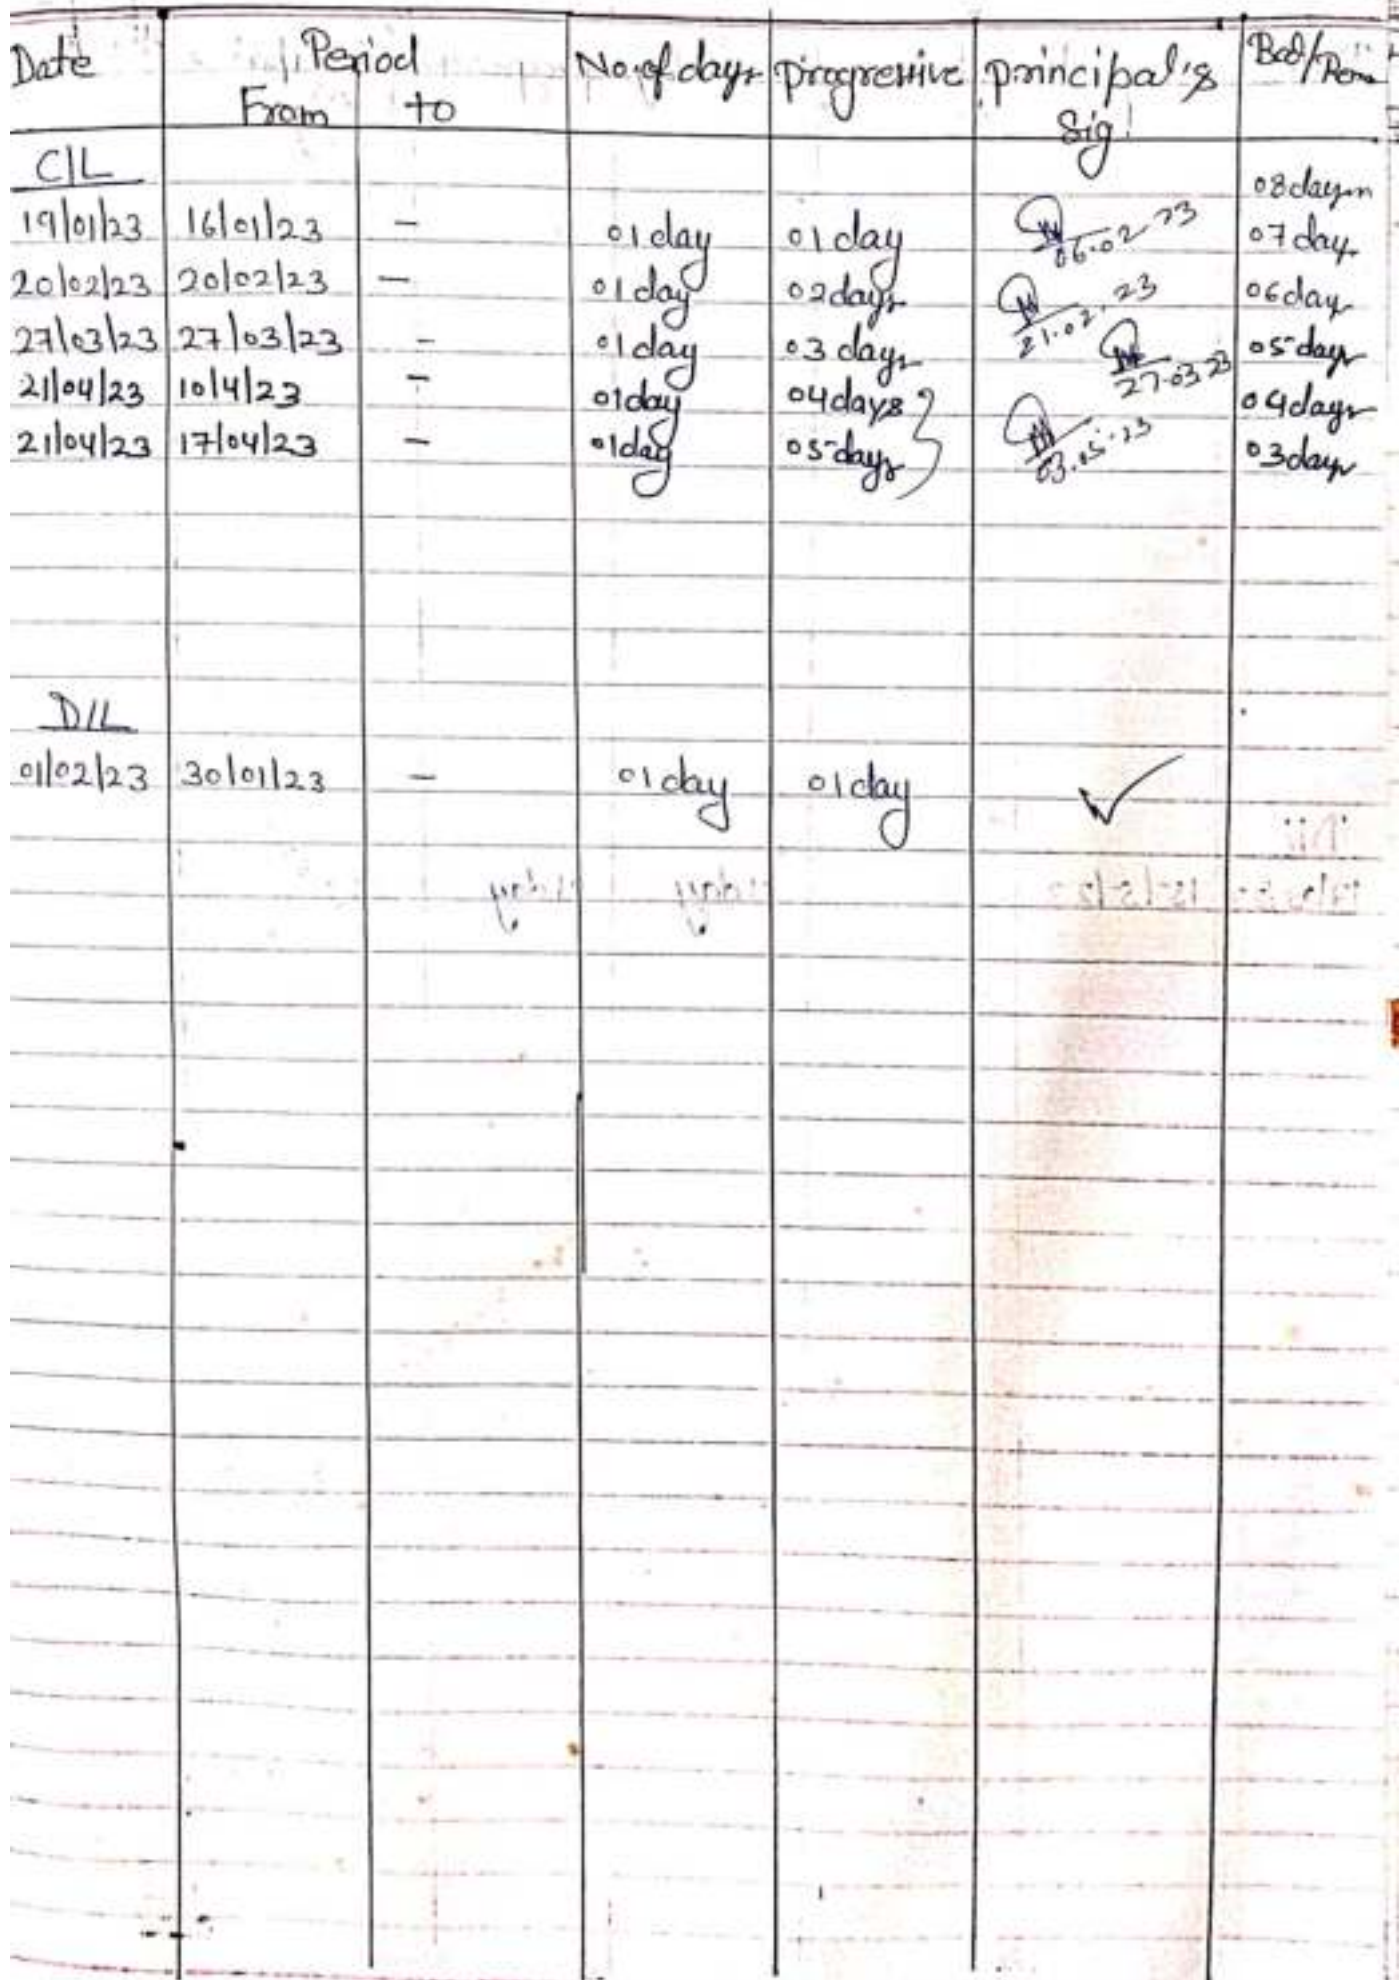 Date Period No. of days progressive principal's Bal/Rema
From to Sig.
C/L 08 days
19/01/23 16/01/23 - 01 day 01 day 06.02.23 07 day
20/02/23 20/02/23 - 01 day 02 days 21.02.23 06 day
27/03/23 27/03/23 - 01 day 03 days 27.03.23 05 days
21/04/23 10/4/23 - 01 day 04 days 04 days
21/04/23 17/04/23 - 01 day 05 days 03.05.23 03 days
D/L
01/02/23 30/01/23 - 01 day 01 day ✓